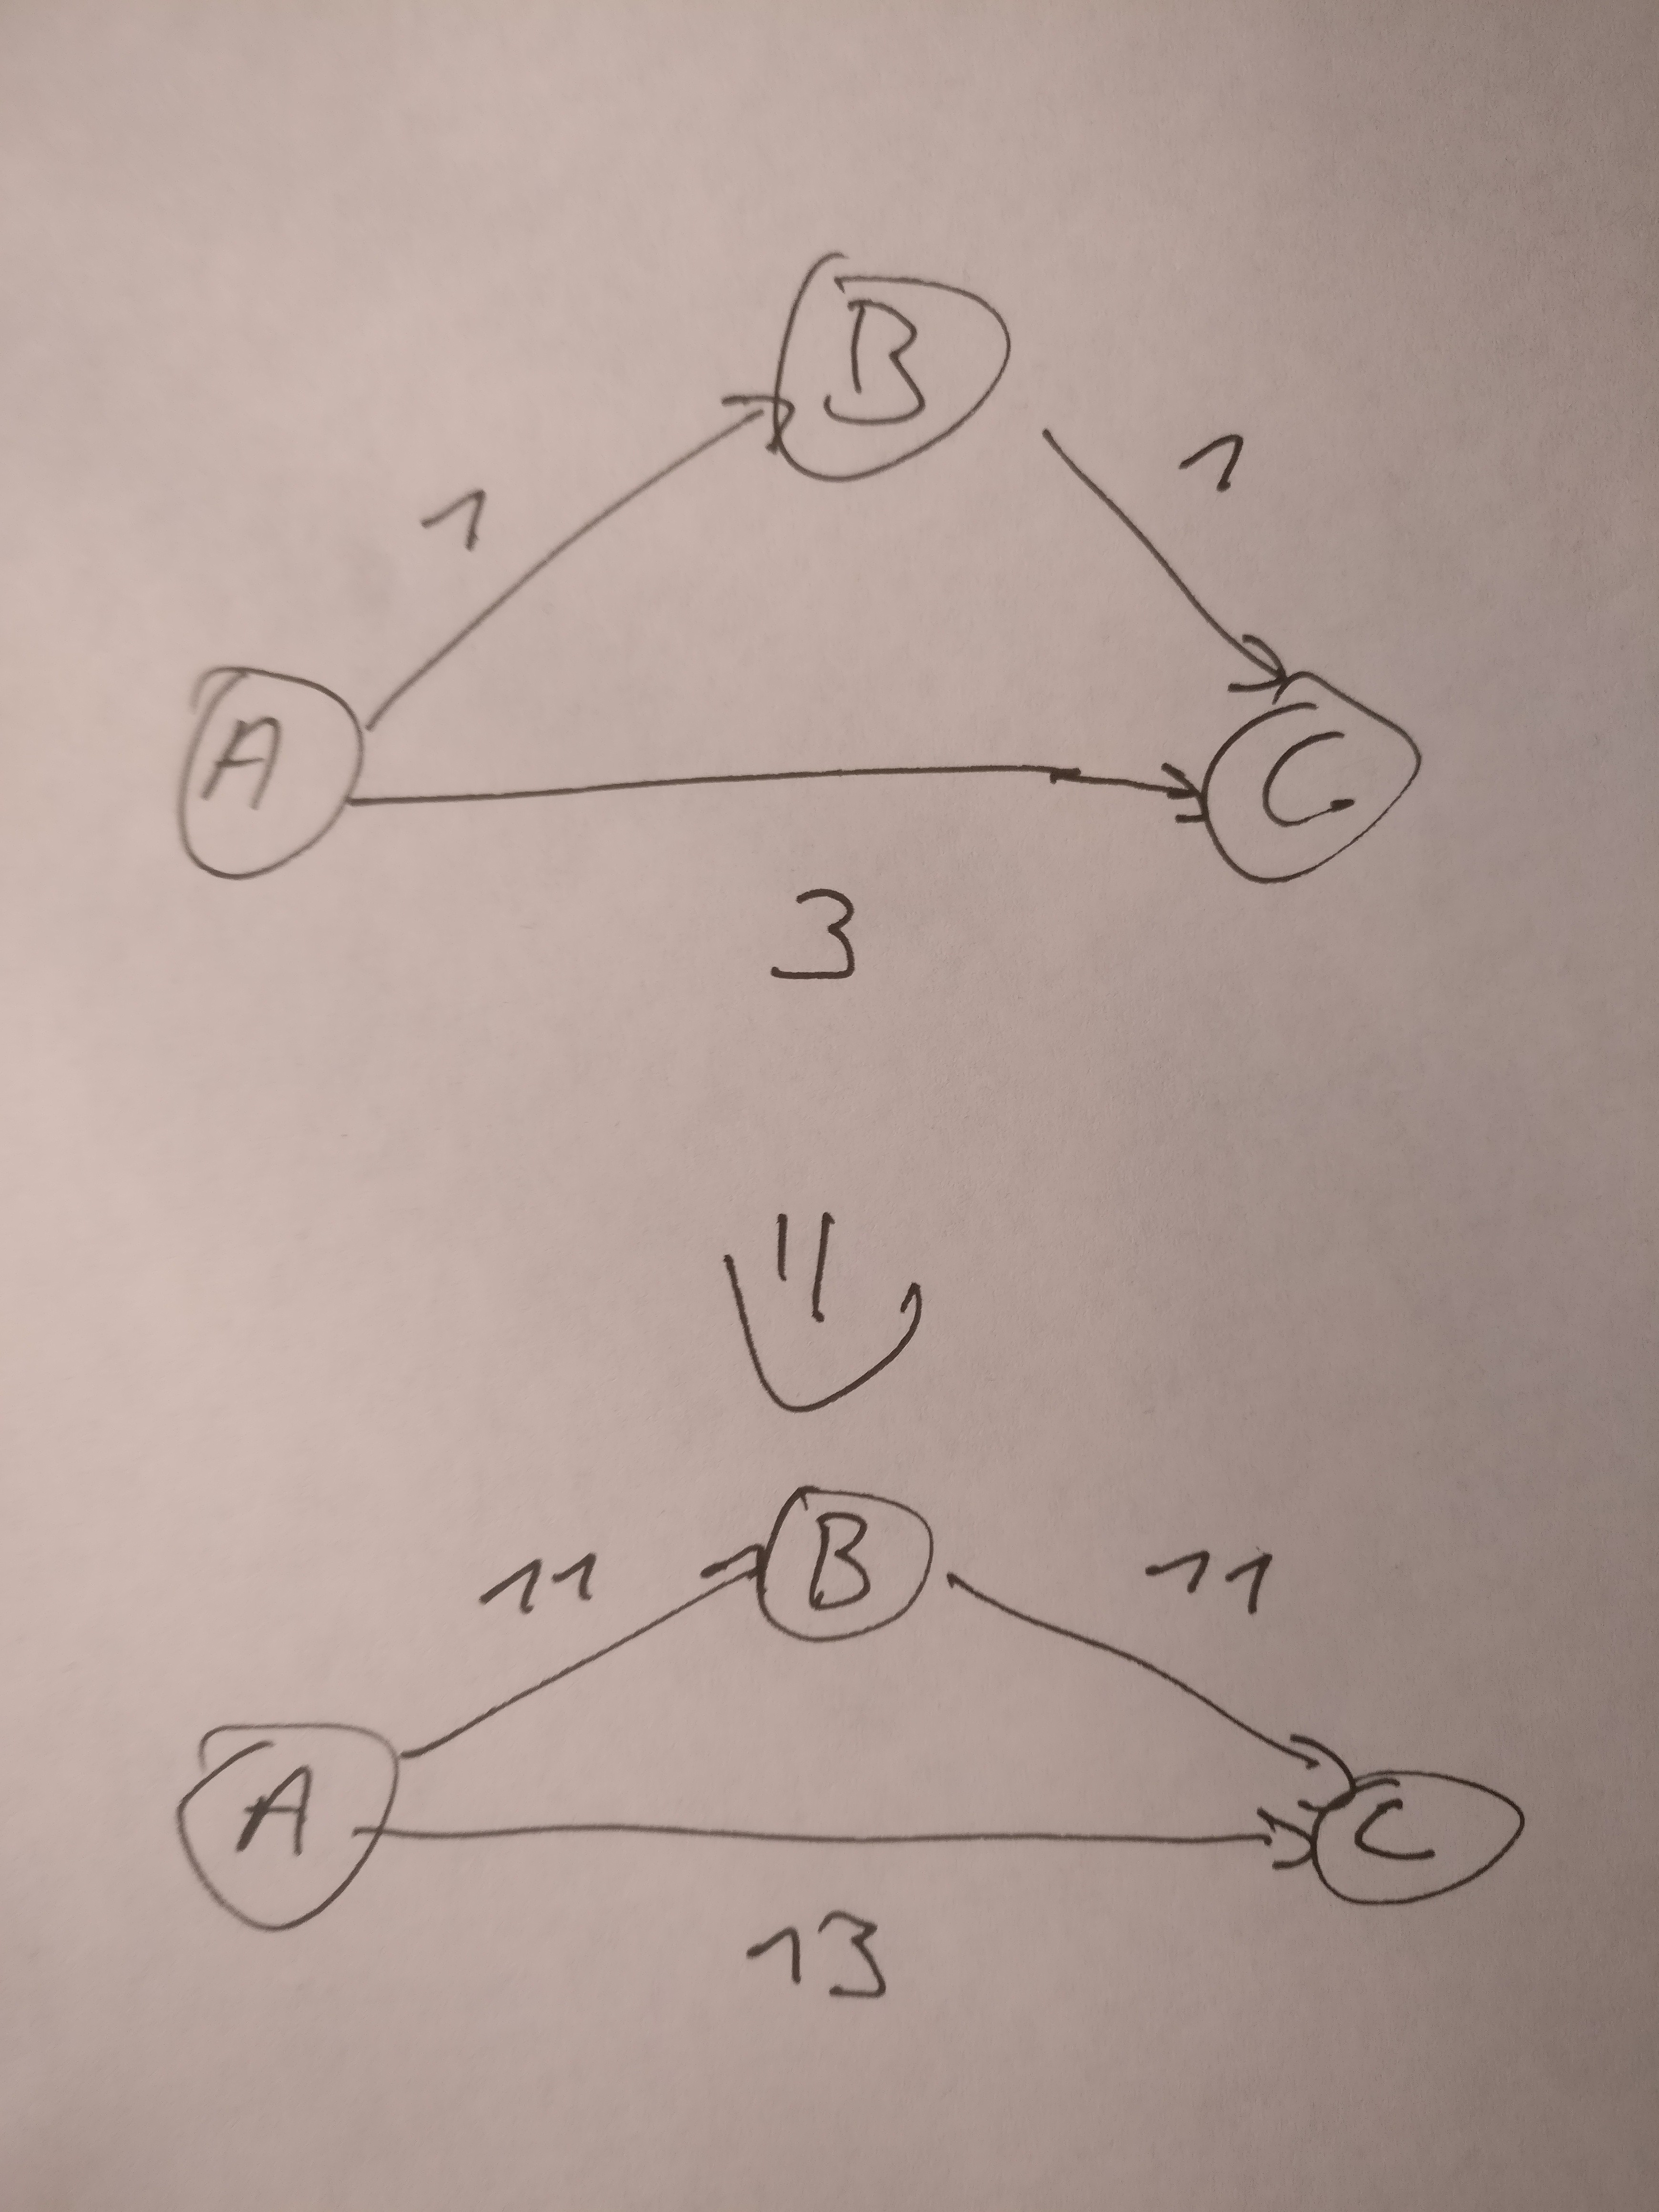 B
1 1
A C
3
B
11 11
A C
13